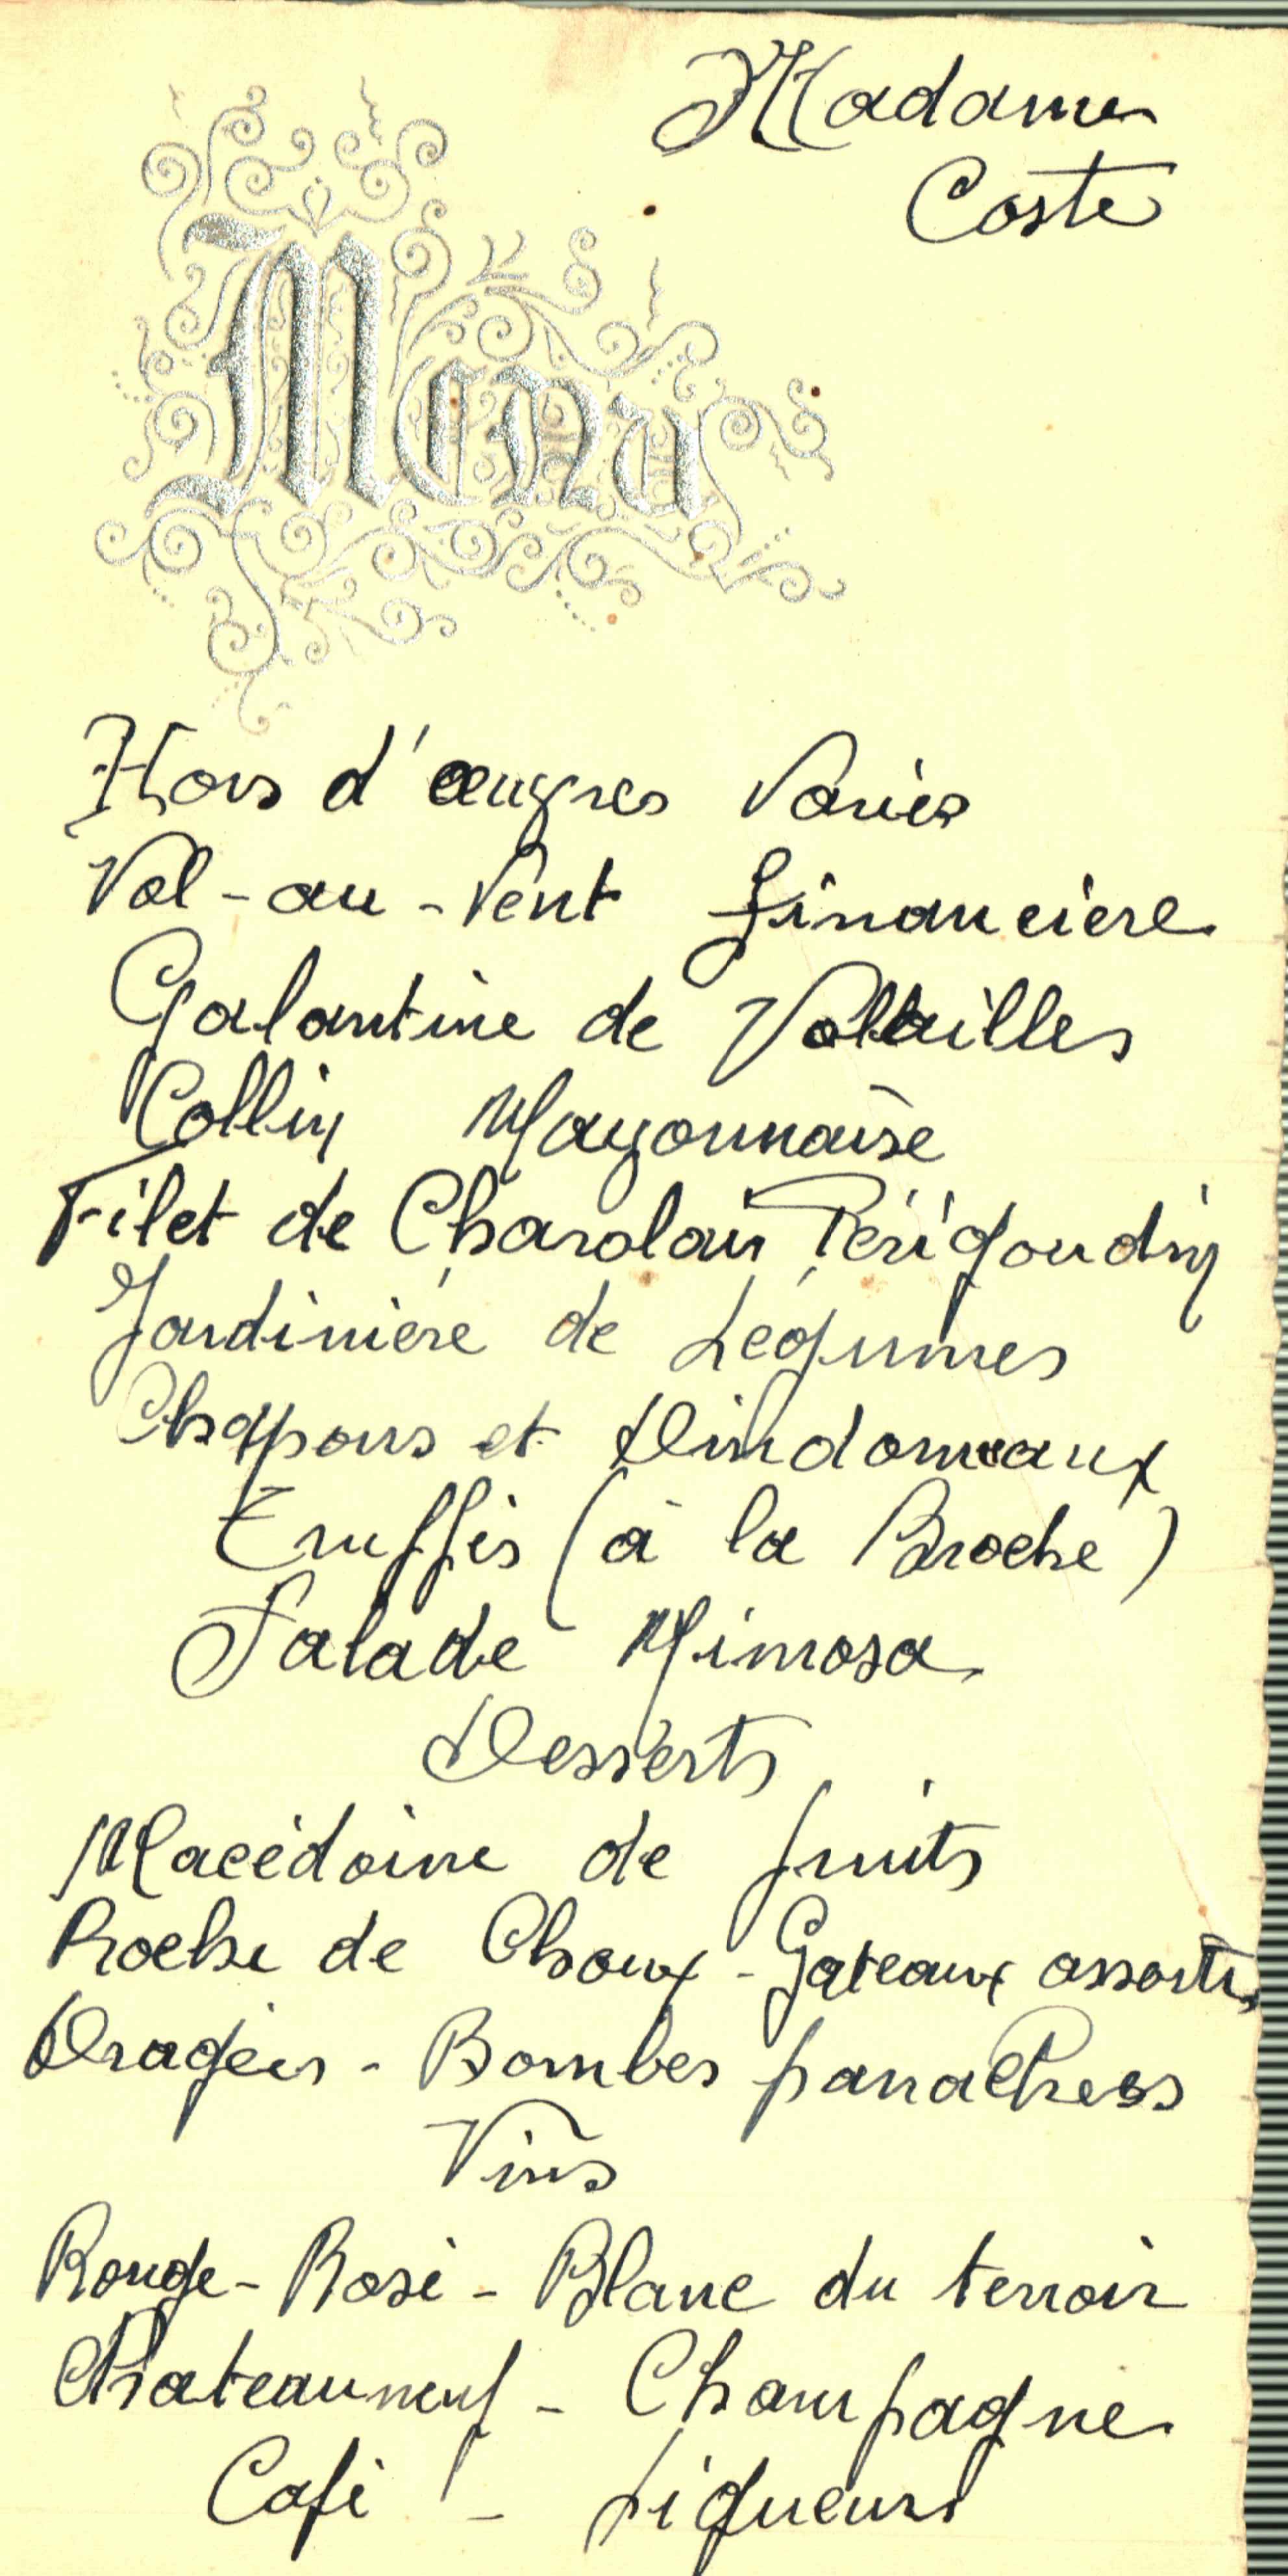 Madame
Coste
Menu
Hors d'œuvres Variés
Vol-au-Vent financière
Galantine de Volailles
Collin Mayonnaise
Filet de Charolais Périgourdin
Jardinière de Légumes
Chapons et Dindonneaux
Truffés (à la Broche)
Salade Mimosa
Desserts
Macédoine de fruits
Roche de Choux - Gateaux assortis
Dragées - Bombes panachees
Vins
Rouge - Rosé - Blanc du terroir
Chateauneuf - Champagne
Café - Liqueurs